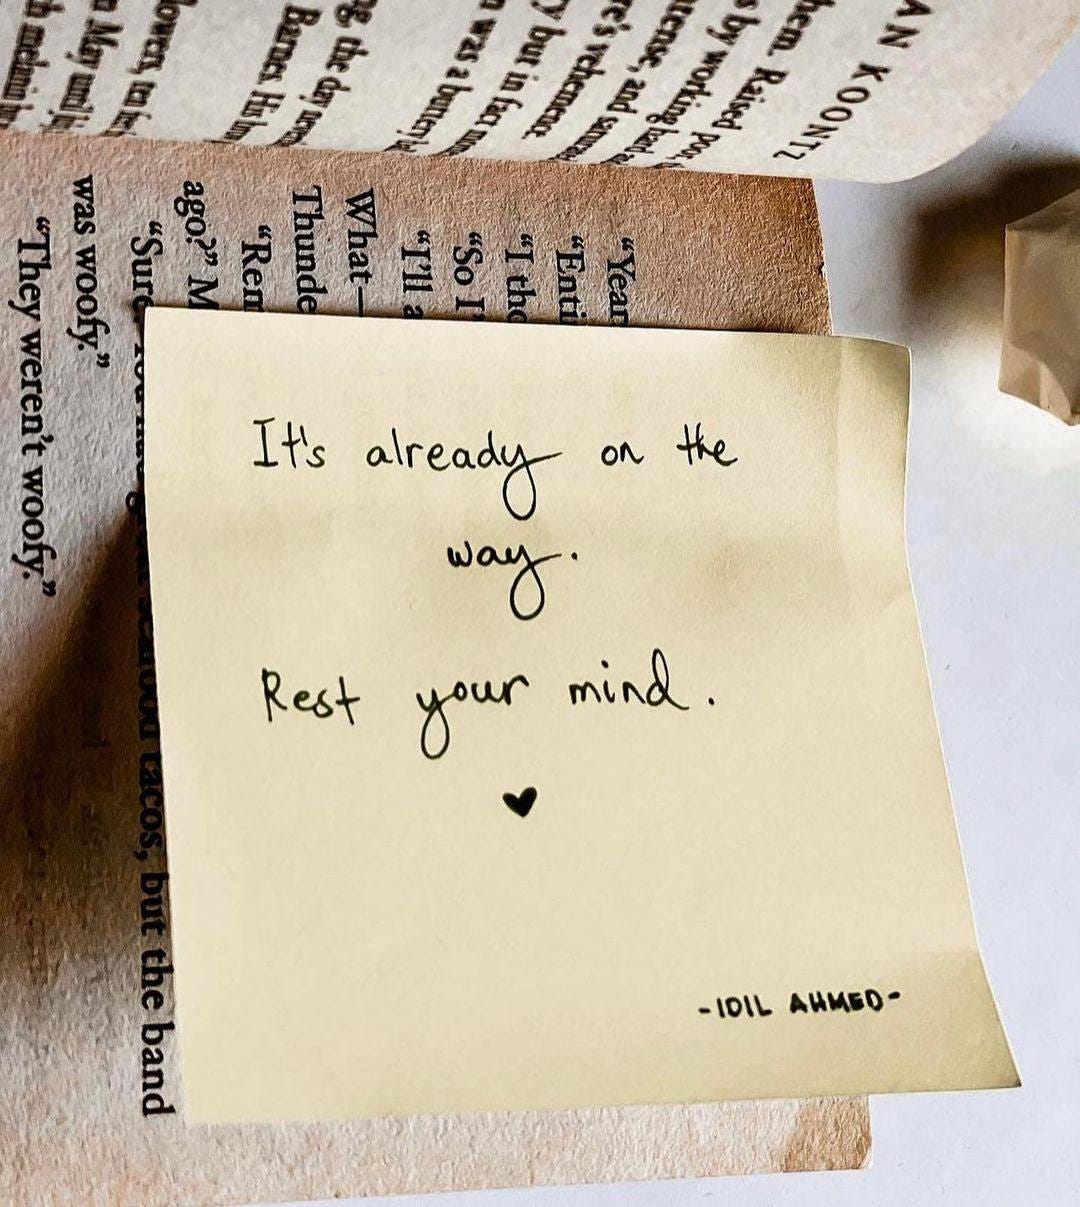 It's already on the
way.
Rest your mind.
-IDIL AHMED-
AN KOONTZ
hem. Raised
by working hard
and
vehemence.
but in fact
was a
the day
Barnes. His
May
"Year
"Enti
"I tho
"So I
"I'll a
What—
Thunde
"Rem
ago?" M
"Sure
tacos, but the band
was woofy."
"They weren't woofy."